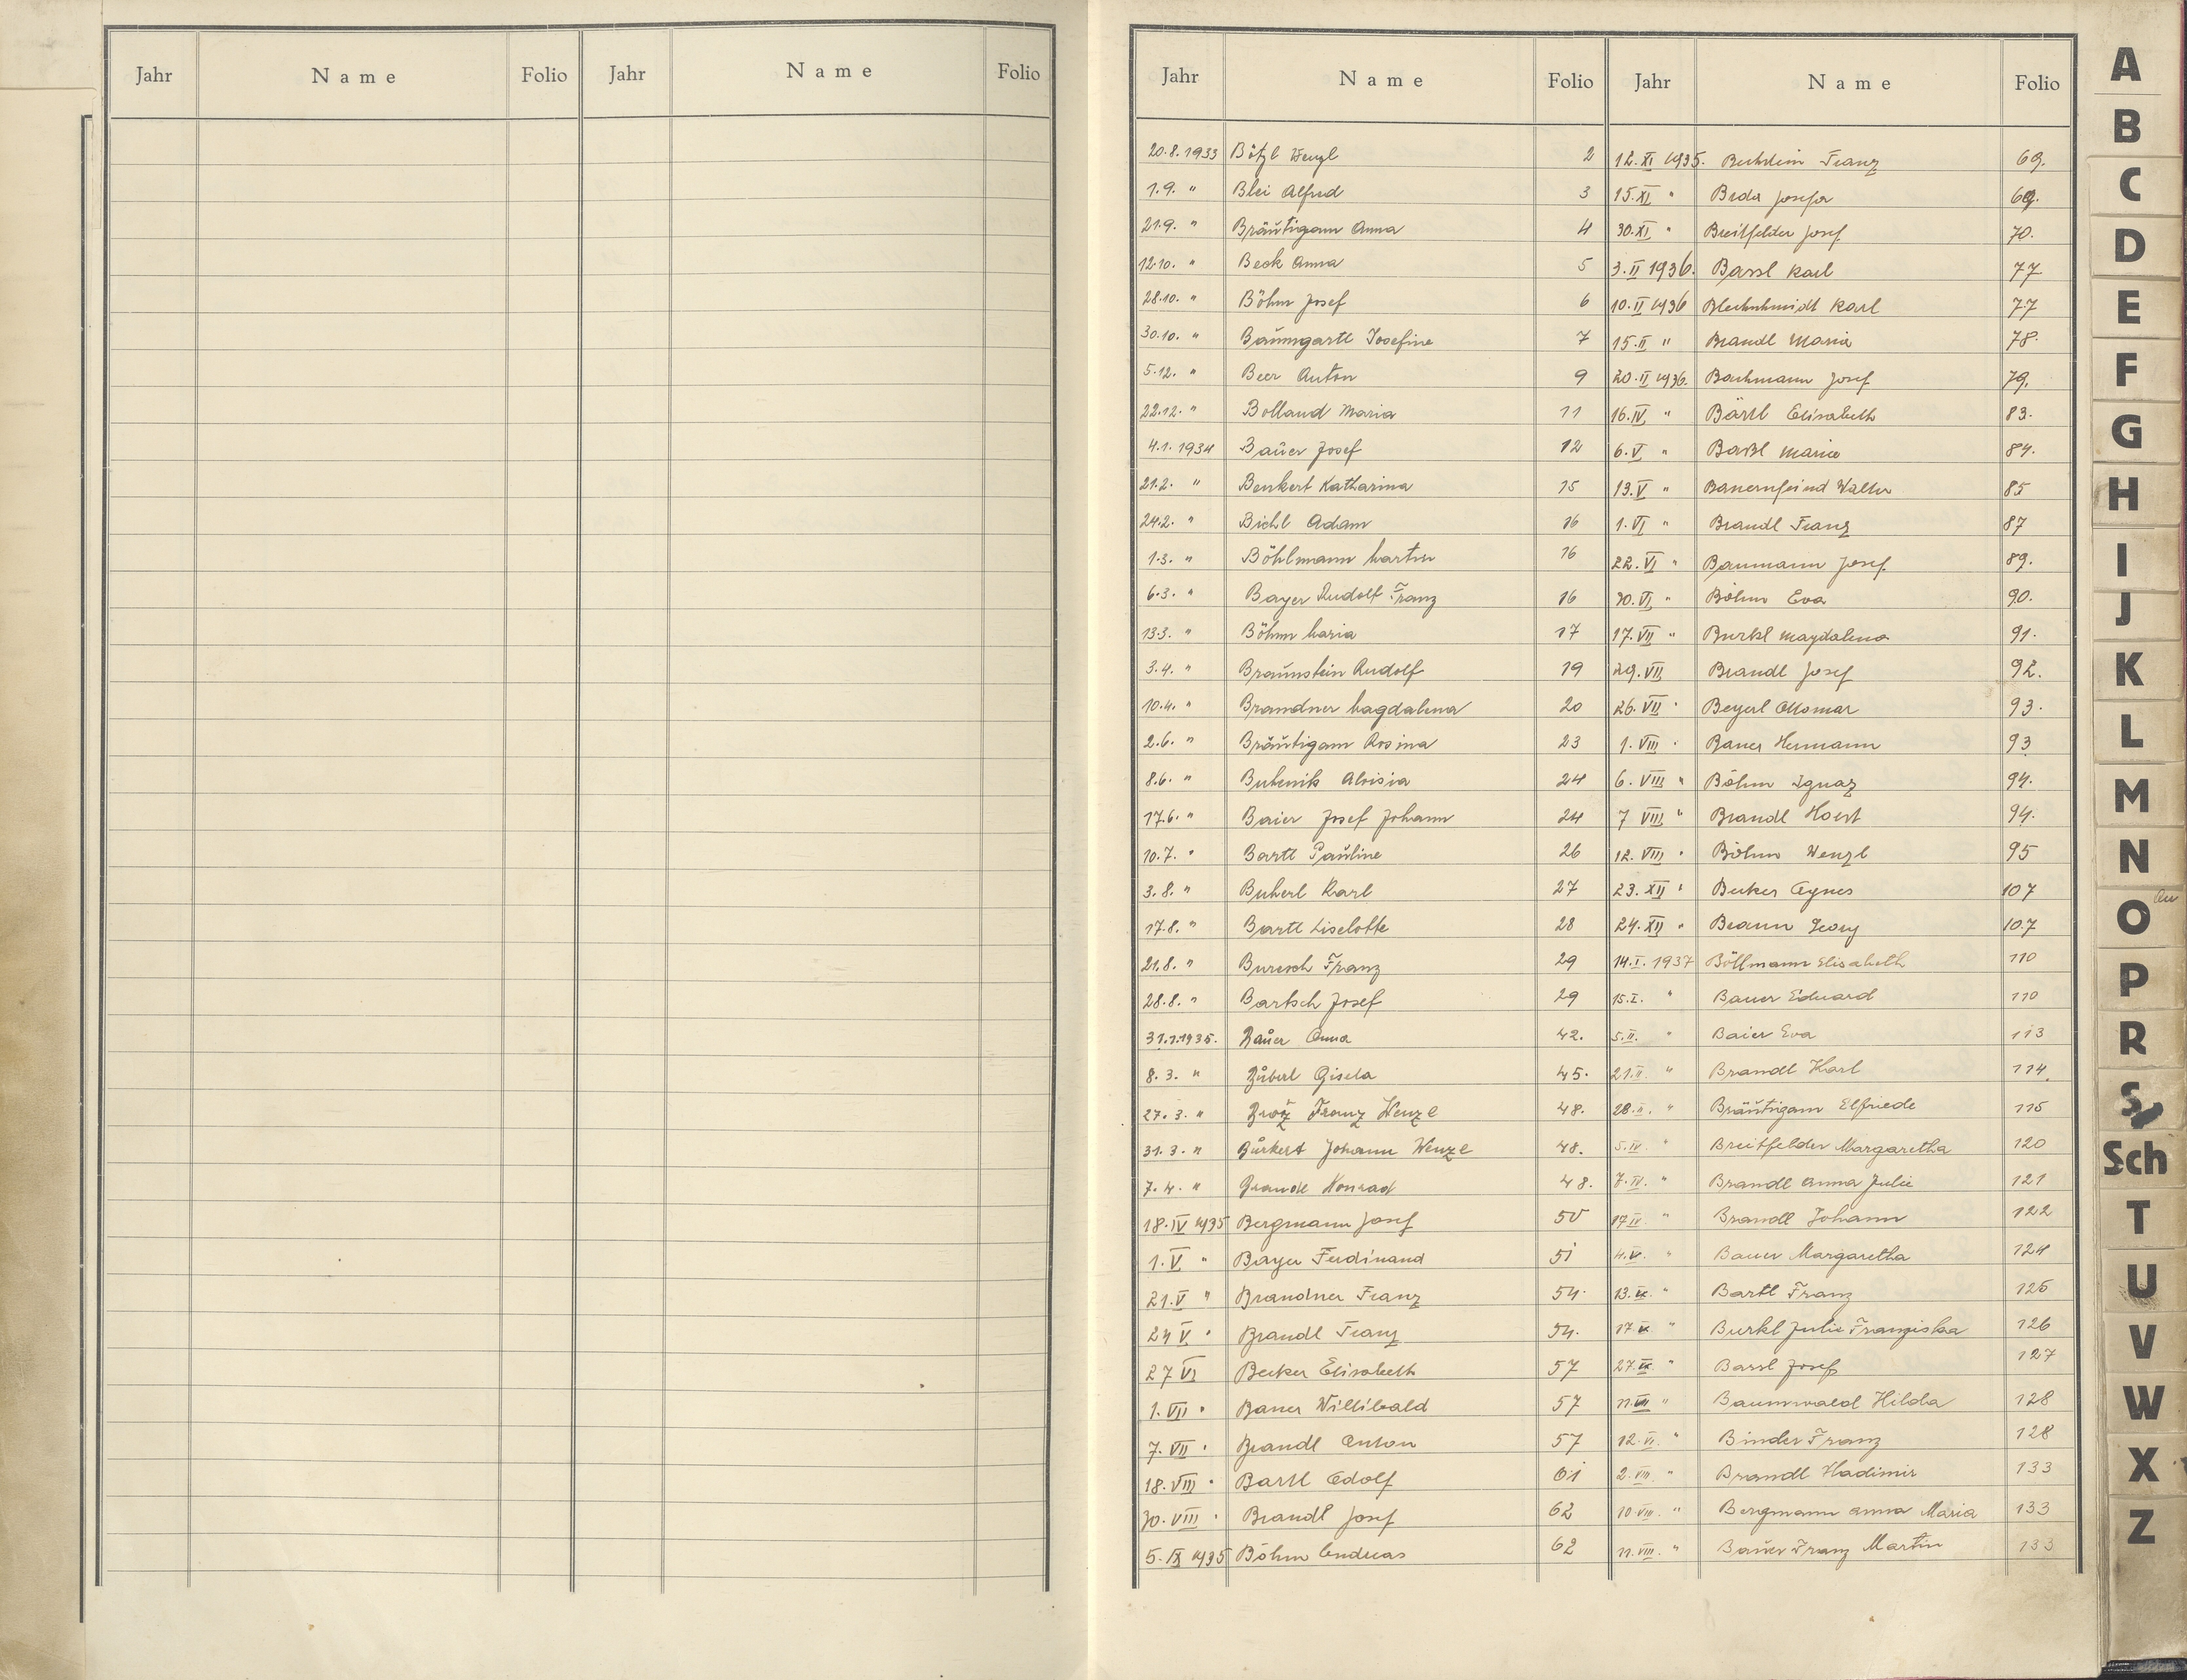 Jahr Name Folio Jahr Name Folio
Jahr Name Folio Jahr Name Folio
20.8.1933 Bötzl Wenzl 2
1.9. " Blei Alfred 3
21.9. " Bräutigam Anna 4
12.10. " Beck Anna 5
28.10. " Böhm Josef 6
30.10. " Baumgartl Josefine 7
5.12. " Beer Anton 9
22.12. " Bolland Maria 11
4.1.1934 Bauer Josef 12
21.2. " Benkert Katharina 15
24.2. " Bichl Adam 16
1.3. " Böhlmann Martin 16
6.3. " Bayer Rudolf Franz 16
13.3. " Böhm Maria 17
3.4. " Braunstein Rudolf 19
10.4. " Brandner Magdalena 20
2.6. " Bräutigam Rosina 23
8.6. " Aloisia 24
17.6. " Baier Josef Johann 24
10.7. " Bartl Pauline 26
3.8. " Buherl Karl 27
17.8. " Bartl Liselotte 28
21.8. " Buresch Franz 29
28.8. " Bartsch Josef 29
31.1.1935. Bauer Anna 42.
8.3. " Gisela 45.
27.3. " Brož Franz Wenzl 48.
31.3. " Burkert Johann Wenzl 48.
7.4. " Brandl Konrad 48.
18.IV 1935 Bergmann Josef 50
1.V " Bayer Ferdinand 51
21.V " Brandner Franz 54.
24 V " Brandl Franz 54.
27 VI Becker Elisabeth 57
1.VII " Bauer Willibald 57
7.VII " Brandl Anton 57
18.VIII " Bartl Adolf 61
30.VIII " Brandl Josef 62
5.IX 1935 Böhm Andreas 62
12.XI 1935. Franz 69.
15.XI " Beda Josefa 69.
30.XI " Breitfelder Josef 70.
3.II 1936. Bassl Karl 77
10.II 1936 Blechschmidt Karl 77
15.II " Brandl Maria 78.
20.II 1936. Bachmann Josef 79.
16.IV. " Bärtl Elisabeth 83.
6.V " Baßl Maria 84.
13.V " Bauernfeind Walter 85
1.VI " Brandl Franz 87
22.VI " Baumann Josef 89.
30.VI " Böhm Eva 90.
17.VII " Burkl Magdalena 91.
29.VII Brandl Josef 92.
26.VII " Beyerl Ottomar 93.
1.VIII " Bauer Hermann 93
6.VIII " Böhm Ignaz 94.
7 VIII " Brandl Horst 94.
12.VIII " Böhm Wenzl 95
23.XII " Becker Agnes 107
24.XII " Braun Georg 107
14.I.1937 Böllmann Elisabeth 110
15.I. " Bauer Eduard 110
5.II. " Baier Eva 113
21.II " Brandl Karl 114.
28.II. " Bräutigam Elfriede 115
5.IV. " Breitfelder Margaretha 120
7.IV. " Brandl Anna Julie 121
17.IV. " Brandl Johann 122
4.V. " Bauer Margaretha 124
13.V. " Bartl Franz 125
17.V. " Burkl Julie Franziska 126
27.V. " Bassl Josef 127
11.VI. " Baumwald Hilda 128
12.VI. " Binder Franz 128
2.VIII. " Brandl Wladimir 133
10.VIII. " Bergmann Anna Maria 133
11.VIII. " Bauer Franz Martin 133
A
B
C
D
E
F
G
H
I
J
K
L
M
N
O
P
R
S
Sch
T
U
V
W
X
Z